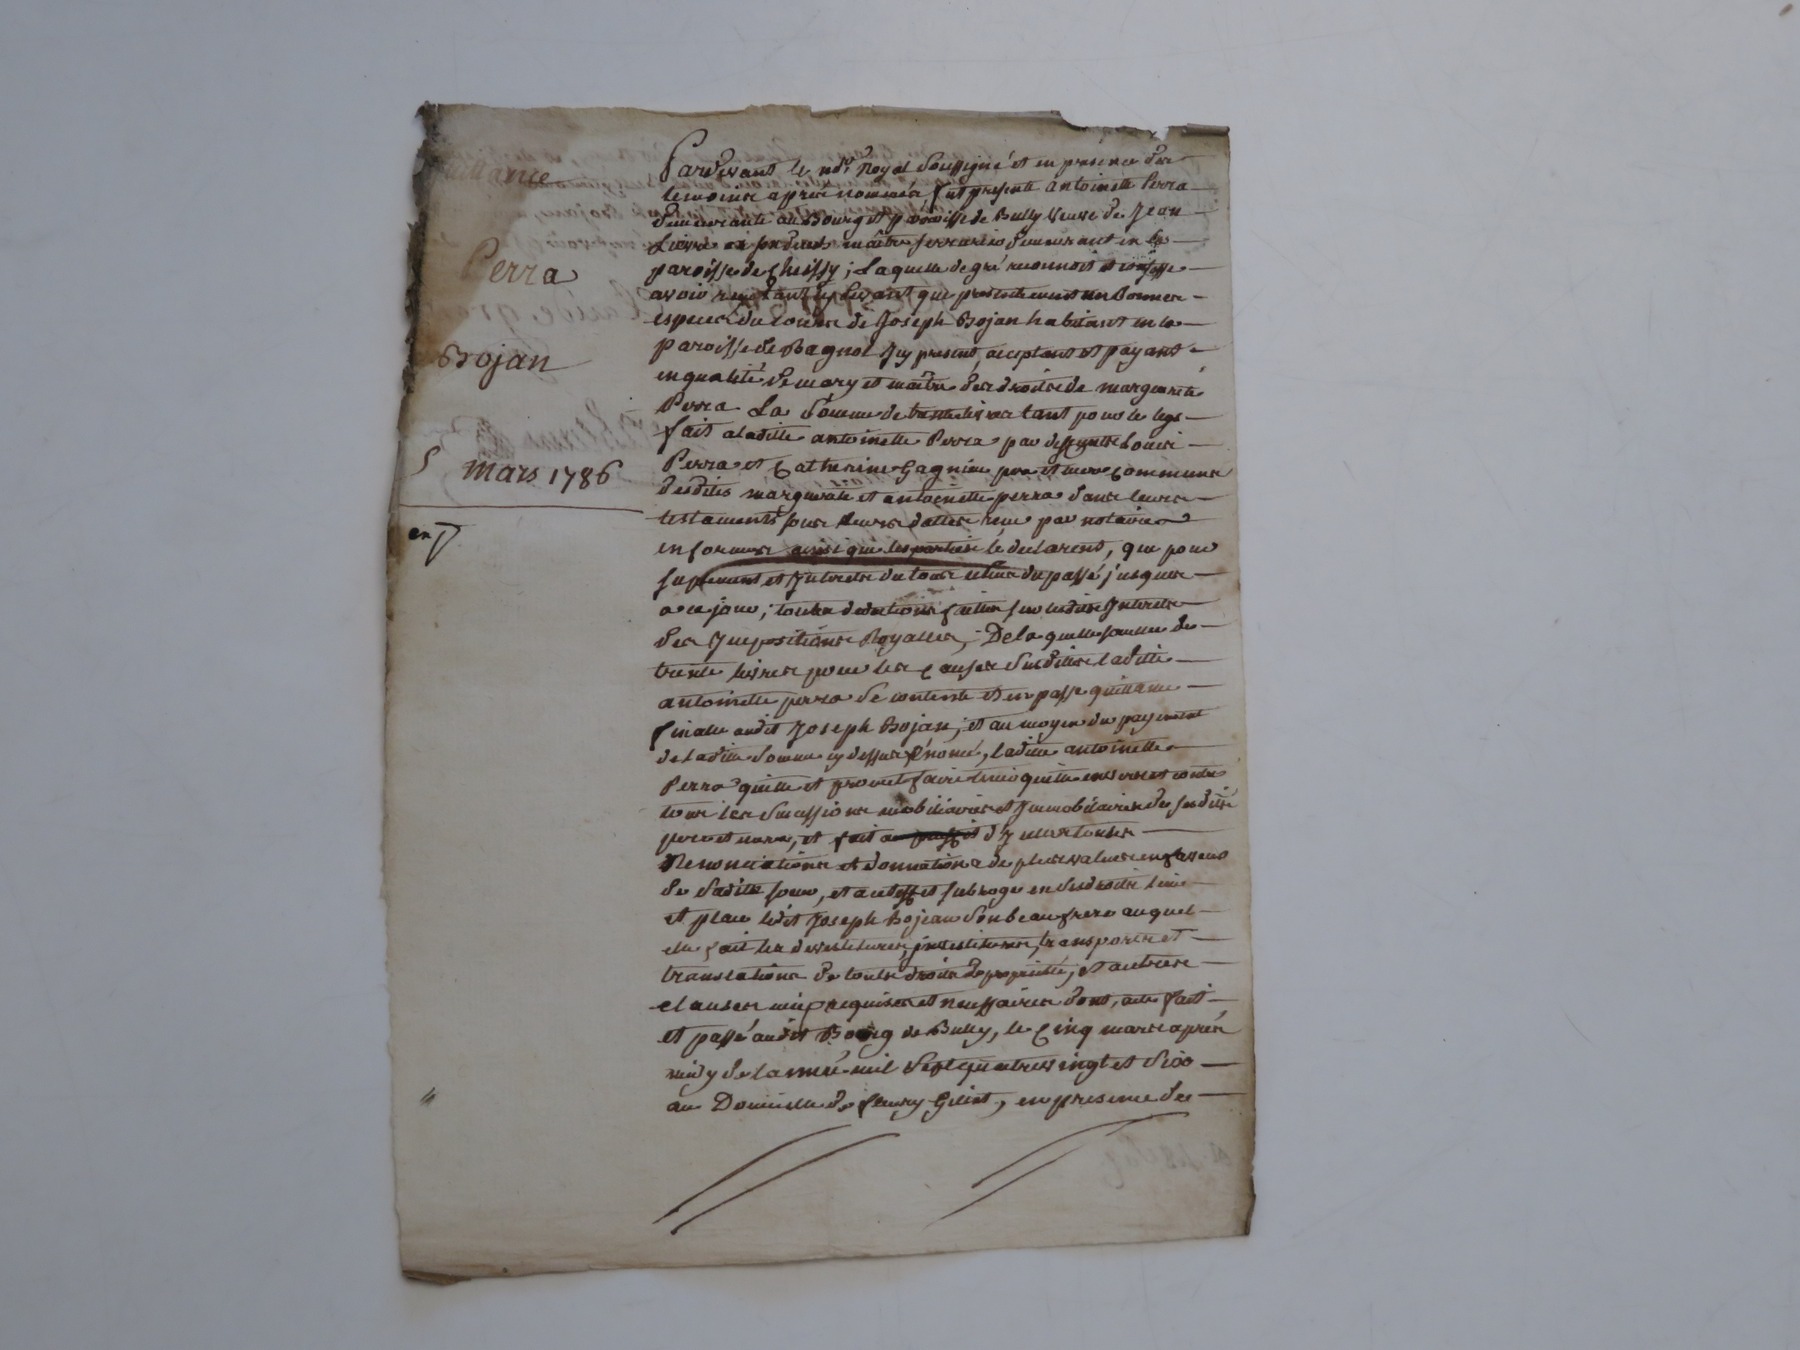 quittance
Perra
Bojan
5 mars 1786
Pardevant le no.re Royal soussigné et en présence des
temoins apres nommés fut presente antoinette Perra
demeurante au Bourg et parroisse de Bully veuve de Jean
maître serrurier demeurant en la
paroisse de Chessy ; Laquelle de gré reconnoit et confesse
avoir reçu tant cy devant que presentement en bonnes
especes du cours de Joseph Bojan habitant en la
paroisse de Bagnol Icy present, acceptant et payant
en qualité de mary et maître des droits de marguerite
Perra La somme de trente livres tant pour le legs
fait a laditte antoinette Perra par deffunts Louis
Perra et Catherine Gagnieu pere et mere communs
desdites marguerite et antoinette perra dans leurs
testaments sous leurs dattes reçu par notaires
en forme ainsi que les parties le declarent, que pour
suplement et Interets du tout du passé jusques
a ce jour ; toutes deductions faittes sur lesdits Interets
des Impositions Royalles ; De laquelle somme de
trente livres pour les causes susdittes laditte
antoinette perra se contente et en passe quittance
finalle audit Joseph Bojan ; et au moyen du payement
de laditte somme cy dessus énoncé, laditte antoinette
Perra quitte et promet faire tenir quitte envers et contre
tous les successions mobiliaires et Immobiliaires de sesdits
pere et mere, et fait d'y
Renonciations et donnations de plus values en faveur
de saditte soeur, et subrogé en ses droits lieu
et place ledit Joseph Bojean son beau frere auquel
elle fait les devestitures, investitures, transports et
translations de touts droits de propriété, et autres
clauses requises et necessaires dont, acte fait
et passé audit Bourg de Bully, le Cinq mars après
midy de l'année mil sept quatre vingt et six
au Domicile de fleury en presence des